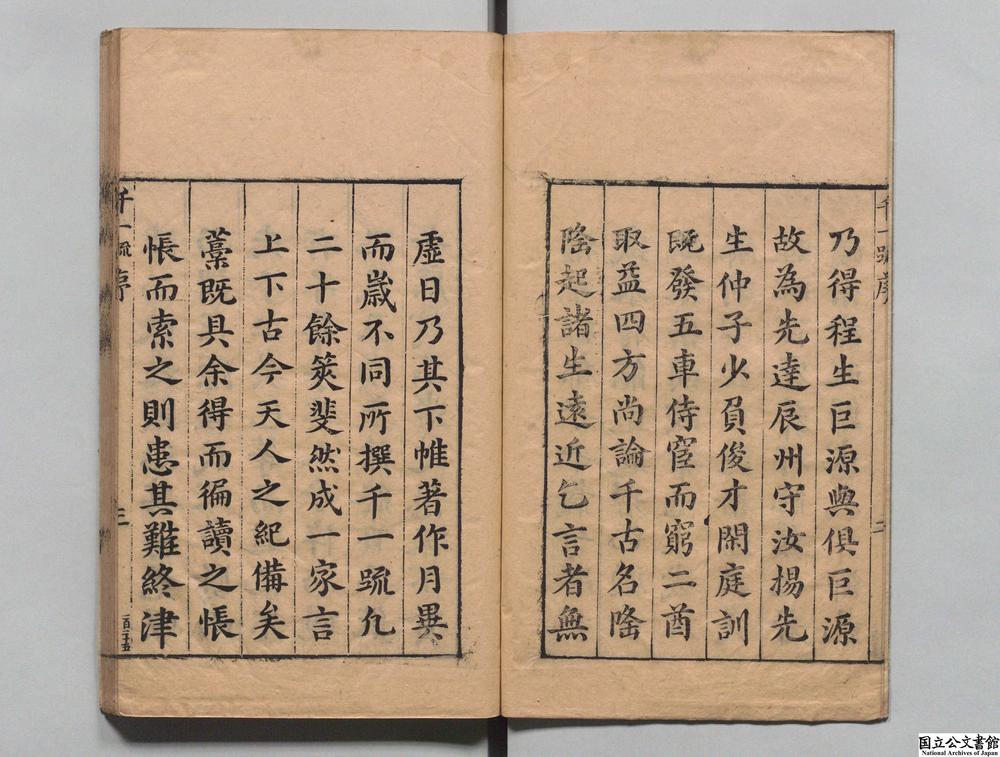 千一疏序
二
乃得程生巨源與俱巨源
故為先達辰州守汝揚先
生仲子少負俊才閑庭訓
既發五車侍宦而窮二酉
取益四方尚論千古名隆
隆起諸生遠近乞言者無
虛日乃其下帷著作月異
而歲不同所撰千一疏凡
二十餘筴斐然成一家言
上下古今天人之紀備矣
藁既具余得而徧讀之悵
悵而索之則患其難終津
千一疏序
三
国立公文書館
National Archives of Japan